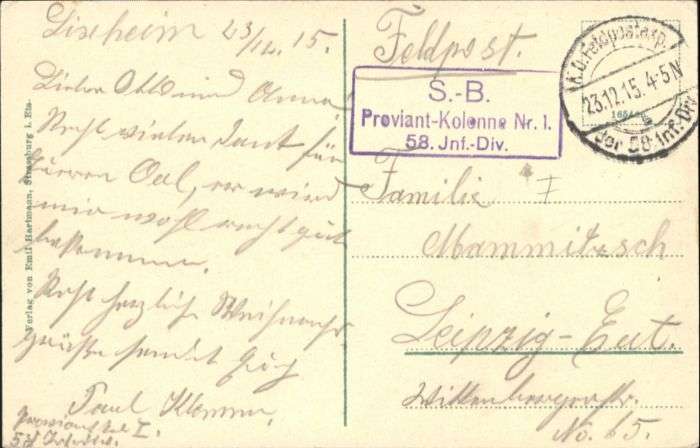 Lixheim 23/12. 15.
Lieber Otto und Anna
Recht vielen Dank für
Euren Aal, er wird
mir wohl recht gut
bekommen.
Recht herzliche Weihnachts
Grüße sendet Euch
Paul
58
Verlag von Emil Hartmann, Strassburg i. Els.
Feldpost.
S.-B.
Proviant-Kolonne Nr. 1.
58. Jnf.-Div.
K.D. Feldpostexp.
23.12.15. 4-5 N
der 58. Inf.-Div.
Familie
Mammitzsch
Leipzig-Eut.
Wittenbergerstr.
No. 65.